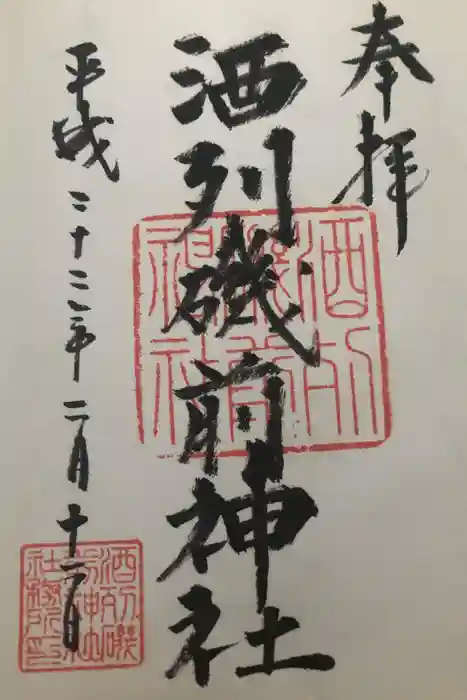 奉拝
酒列磯前神社
平成二十三年二月十二日
酒列磯前神社
酒列磯前神社社務所印